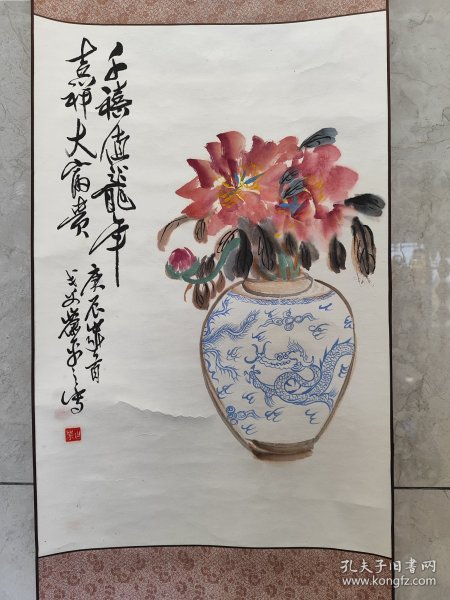 千禧值龍年
吉祥大富贵
庚辰岁首
孔夫子旧书网
www.kongfz.com